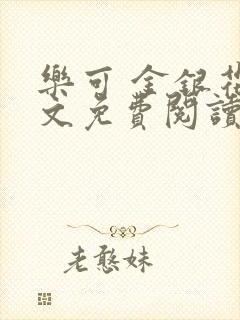 樂可 金銀花
文免費閱讀
老憨妹